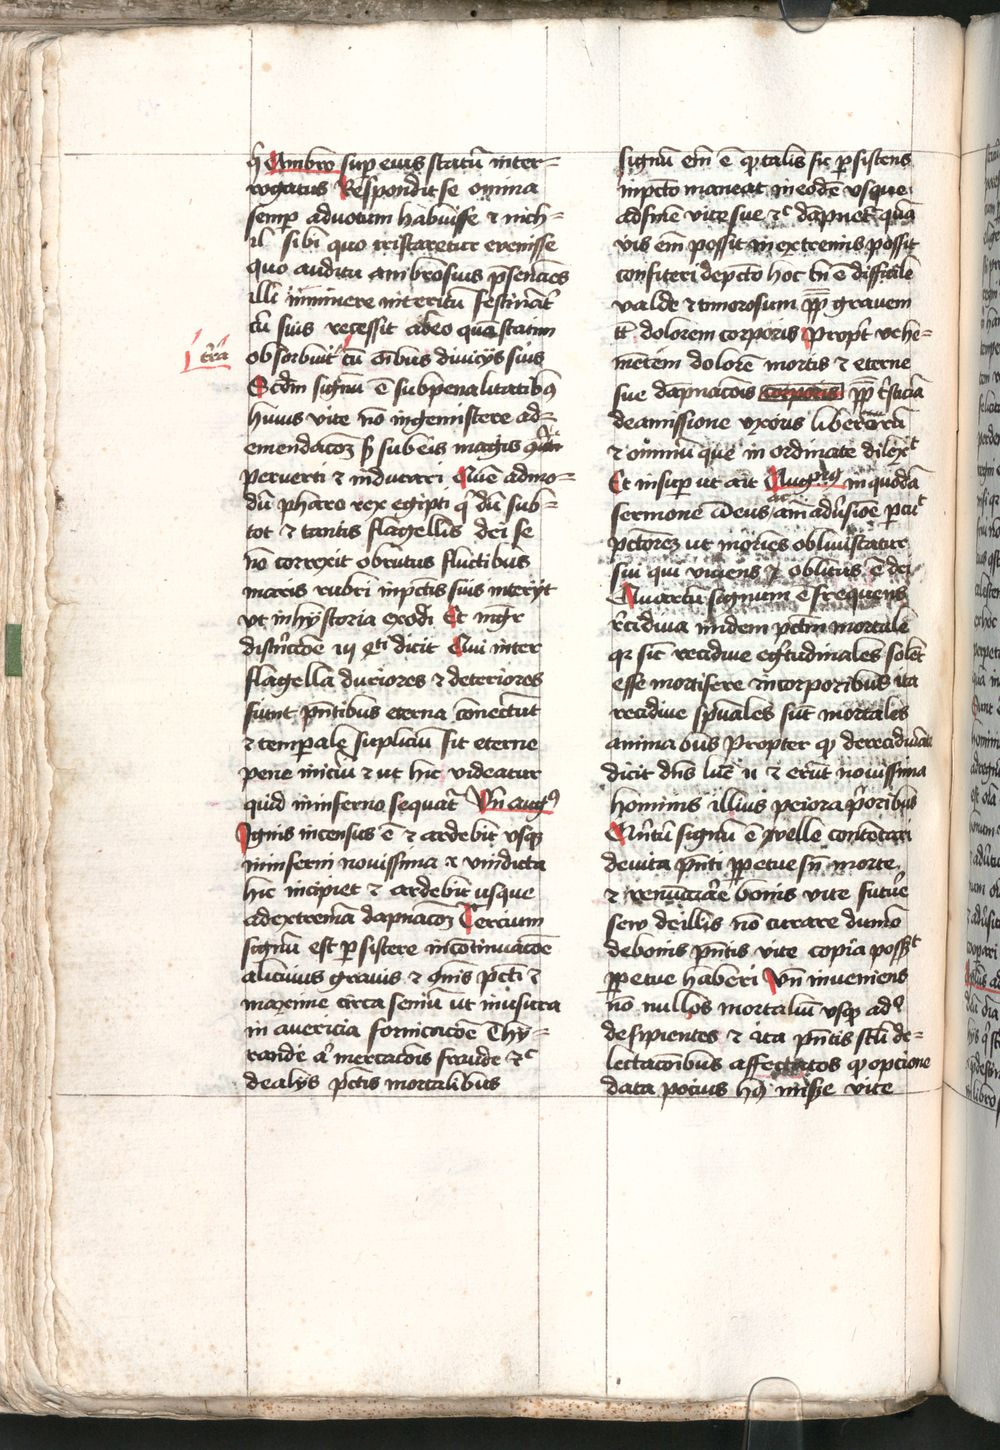 q̄ Ambro sup eius statū inter=
rogatus Respondit se omnia
semp̲ ad votum habuisse ⁊ nich=
il sibi quo tristaretur evenisse
quo auditu ambrosius p̄sencies
illi iminere interitū festināt
cū suis recessit ab eo quā statim
t̄ra
obsorbuit cū oībus diuicijs suis
Scdm signū ē sub penalitatibꝯ
huius vite nō ingemistere ad=
emendacoꝫ sꝫ sub eis magis
perverti ⁊ indurari Quē admo=
dū pharo rex egipti q̄ dū sub=
tot ⁊ tantis flagellis dei se
nō correxit obrutus fluctibus
maris rubri in pctis suis interijt
vt in hystoria exodi Et mgr̄
distincōe iij dicit Qui inter
flagella duriores ⁊ deteriores
fiunt p̄ntibus eterna conectūt
⁊ temporale supliciū sit eterne
pene iniciū ⁊ ut hic videatur
quid in inferno sequat̄ Vn̄ augꝯ
Ignis incensus ē ⁊ ardebit vsqꝫ
inferni novissima ⁊ vindicta
hic incipiet ⁊ ardebit usque
ad extremā dapnacoꝫ Tercium
signū est p̲sistere in continuacōe
alicuius gravis ⁊ pcti ⁊
maxime circa seniū ut in usura
in auericia fornicacōe Thy=
rande mercacōis fraude ⁊c̄
de alijs pctis mortalibus
signū em̄ ē ꝙ talis sic p̲sistens
in pcto maneat in eodē vsque
ad finē vite sue ⁊c̄ dapnet̄ quā
vis em̄ possit in extremis possit
confiteri de pcto hoc tn̄ ē difficile
valde ⁊ timorosum pp̄ gravem
dolorem corporis propt̄ vehe=
metem dolorē mortis ⁊ eterne
sue dapnacōis corporis pp̄ t̄sticiā
de amissione vxoris
⁊ omniū que in ordinate dilexit
Et insup̲ ut ait Augꝯ in quodā
sermone Deus
pctoreꝫ ut moriēs obliuistatur
sui qui viuens ⁊ oblitus ē dei
Quartū signum ē frequens
recidiua in idem pctm mortale
qꝛ sic recidive egritudinales solēt
esse mortifere in corporibus ita
recidive spūales sūt mortales
animabus Propter ꝙ de recidivāte
dicit dn̄s luc̄ ⁊ erūt novissima
hominis illius peiora p̄oribus
Quintū signū ē velle contentari
de vita p̄nti pp̲etue sn̄ morte
⁊ renūciare bonis vite future
sew de illis nō curare dūmō
de bonis p̄ntis vite copia possꝫ
pp̲etue haberi Vn̄ inveniens
nō nullos mortaliū vsqꝫ ad
desipientes ⁊ ita p̄ntis scli de=
lectacōibus affectatos ꝙ opcione
data pocius vite